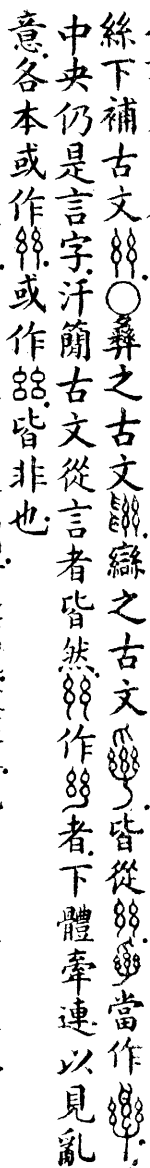 絲下補古文○彝之古文䜌之古文皆從當作
中央仍是言字汗簡古文從言者皆然作者下體牽連以見亂
意各本或作或作皆非也